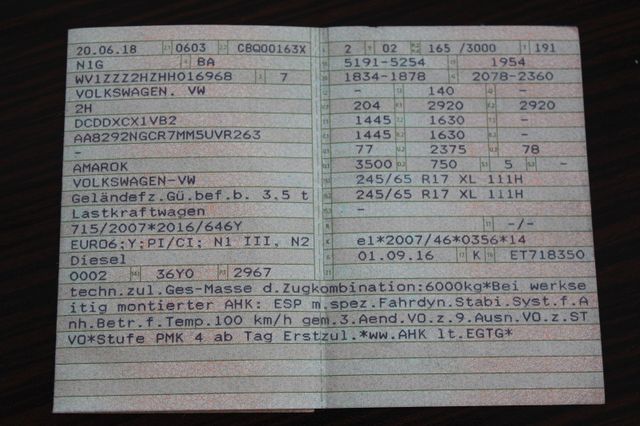 20.06.18 0603 CBQ00163X
N1G BA
WV1ZZZ2HZHH016968 7
VOLKSWAGEN. VW
2H
DCDDXCX1VB2
AA8292NGCR7MM5UVR263
-
AMAROK
VOLKSWAGEN-VW
Geländefz.Gü.bef.b. 3.5 t
Lastkraftwagen
715/2007*2016/646Y
EURO6;Y;PI/CI; N1 III, N2
Diesel
0002 36Y0 2967
2 02 165 /3000 191
5191-5254 1954
1834-1878 2078-2360
- 140 -
204 2920 2920
1445 1630 -
1445 1630 -
77 2375 78
3500 750 5 -
245/65 R17 XL 111H
245/65 R17 XL 111H
-
-/-
e1*2007/46*0356*14
01.09.16 K ET718350
techn.zul.Ges-Masse d.Zugkombination:6000kg*Bei werkse
itig montierter AHK: ESP m.spez.Fahrdyn.Stabi.Syst.f.A
nh.Betr.f.Temp.100 km/h gem.3.Aend.VO.z.9.Ausn.VO.z.ST
VO*Stufe PMK 4 ab Tag Erstzul.*ww.AHK lt.EGTG*